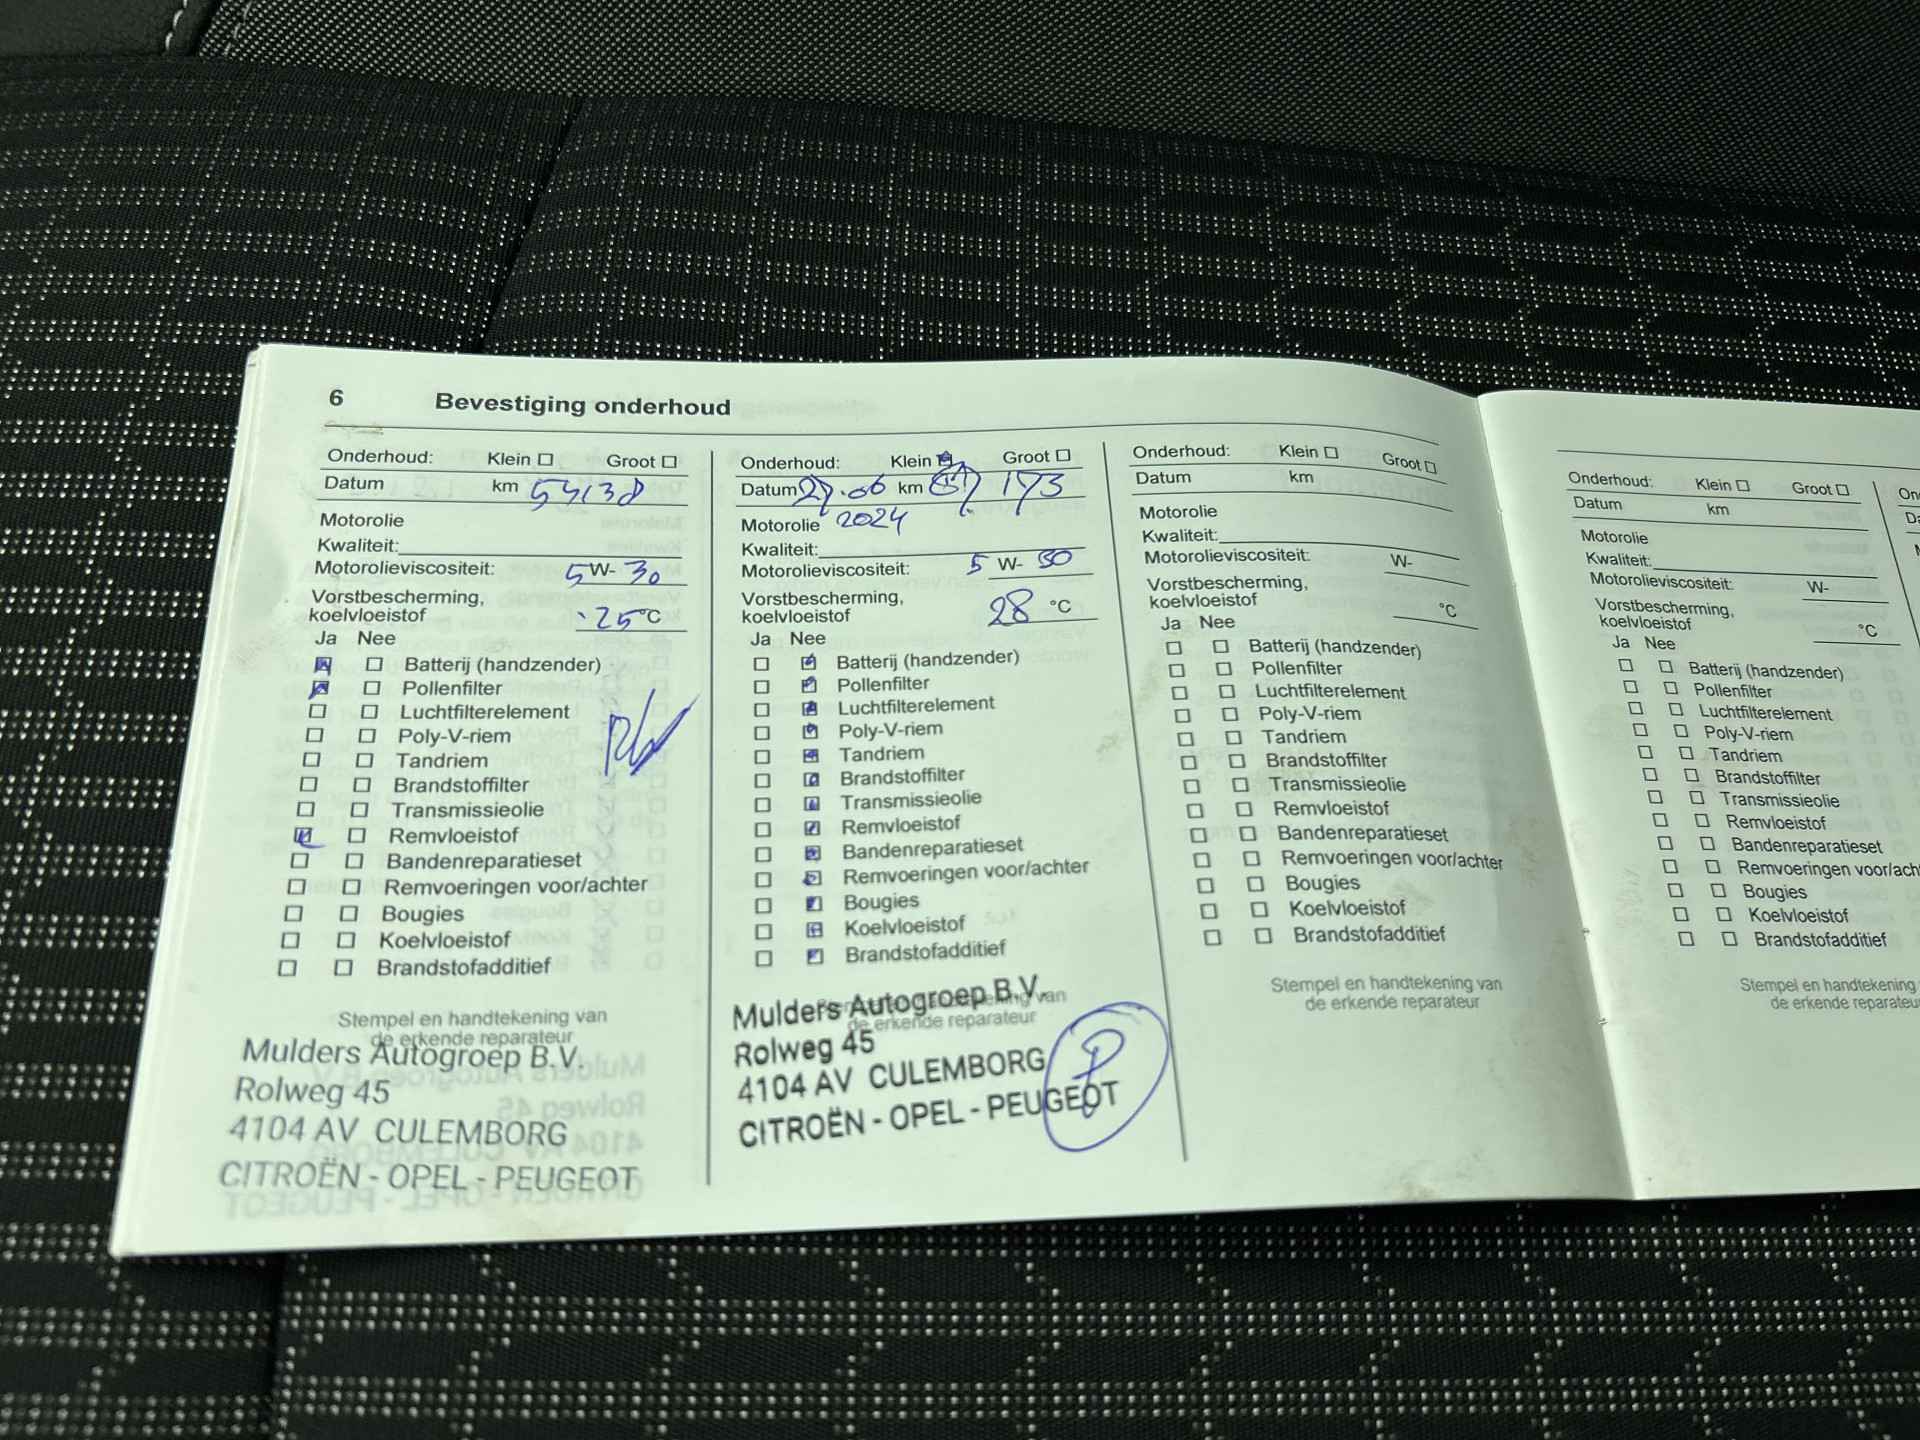 6 Bevestiging onderhoud
Onderhoud: Klein Groot
Datum km
Motorolie
Kwaliteit:
Motorolieviscositeit: 5 W- 30
Vorstbescherming,
koelvloeistof -25 °C
Ja Nee
Batterij (handzender)
Pollenfilter
Luchtfilterelement
Poly-V-riem
Tandriem
Brandstoffilter
Transmissieolie
Remvloeistof
Bandenreparatieset
Remvoeringen voor/achter
Bougies
Koelvloeistof
Brandstofadditief
Stempel en handtekening van
de erkende reparateur
Mulders Autogroep B.V.
Rolweg 45
4104 AV CULEMBORG
CITROËN - OPEL - PEUGEOT
Onderhoud: Klein Groot
Datum km 173
Motorolie 2024
Kwaliteit:
Motorolieviscositeit: 5 W- 30
Vorstbescherming,
koelvloeistof 28 °C
Ja Nee
Batterij (handzender)
Pollenfilter
Luchtfilterelement
Poly-V-riem
Tandriem
Brandstoffilter
Transmissieolie
Remvloeistof
Bandenreparatieset
Remvoeringen voor/achter
Bougies
Koelvloeistof
Brandstofadditief
Stempel en handtekening van
de erkende reparateur
Mulders Autogroep B.V.
Rolweg 45
4104 AV CULEMBORG
CITROËN - OPEL - PEUGEOT
Onderhoud: Klein Groot
Datum km
Motorolie
Kwaliteit:
Motorolieviscositeit: W-
Vorstbescherming,
koelvloeistof °C
Ja Nee
Batterij (handzender)
Pollenfilter
Luchtfilterelement
Poly-V-riem
Tandriem
Brandstoffilter
Transmissieolie
Remvloeistof
Bandenreparatieset
Remvoeringen voor/achter
Bougies
Koelvloeistof
Brandstofadditief
Stempel en handtekening van
de erkende reparateur
Onderhoud: Klein Groot
Datum km
Motorolie
Kwaliteit:
Motorolieviscositeit: W-
Vorstbescherming,
koelvloeistof °C
Ja Nee
Batterij (handzender)
Pollenfilter
Luchtfilterelement
Poly-V-riem
Tandriem
Brandstoffilter
Transmissieolie
Remvloeistof
Bandenreparatieset
Remvoeringen voor/ach
Bougies
Koelvloeistof
Brandstofadditief
Stempel en handtekening
de erkende reparateur